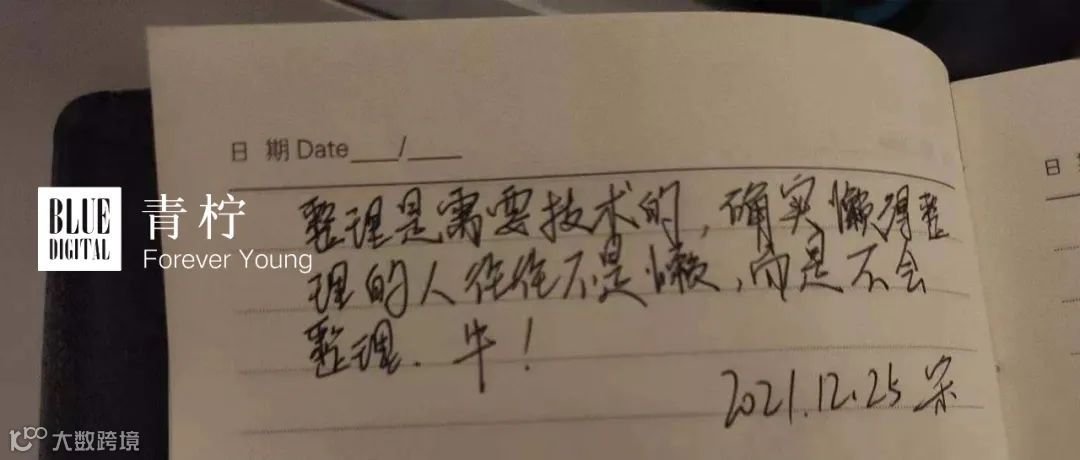 日 期 Date___/___
日
BLUE
DIGITAL
青柠
Forever Young
整理是需要技术的,确实懒得整
理的人往往不是懒,而是不会
整理. 牛!
2021.12.25 宋
大数跨境